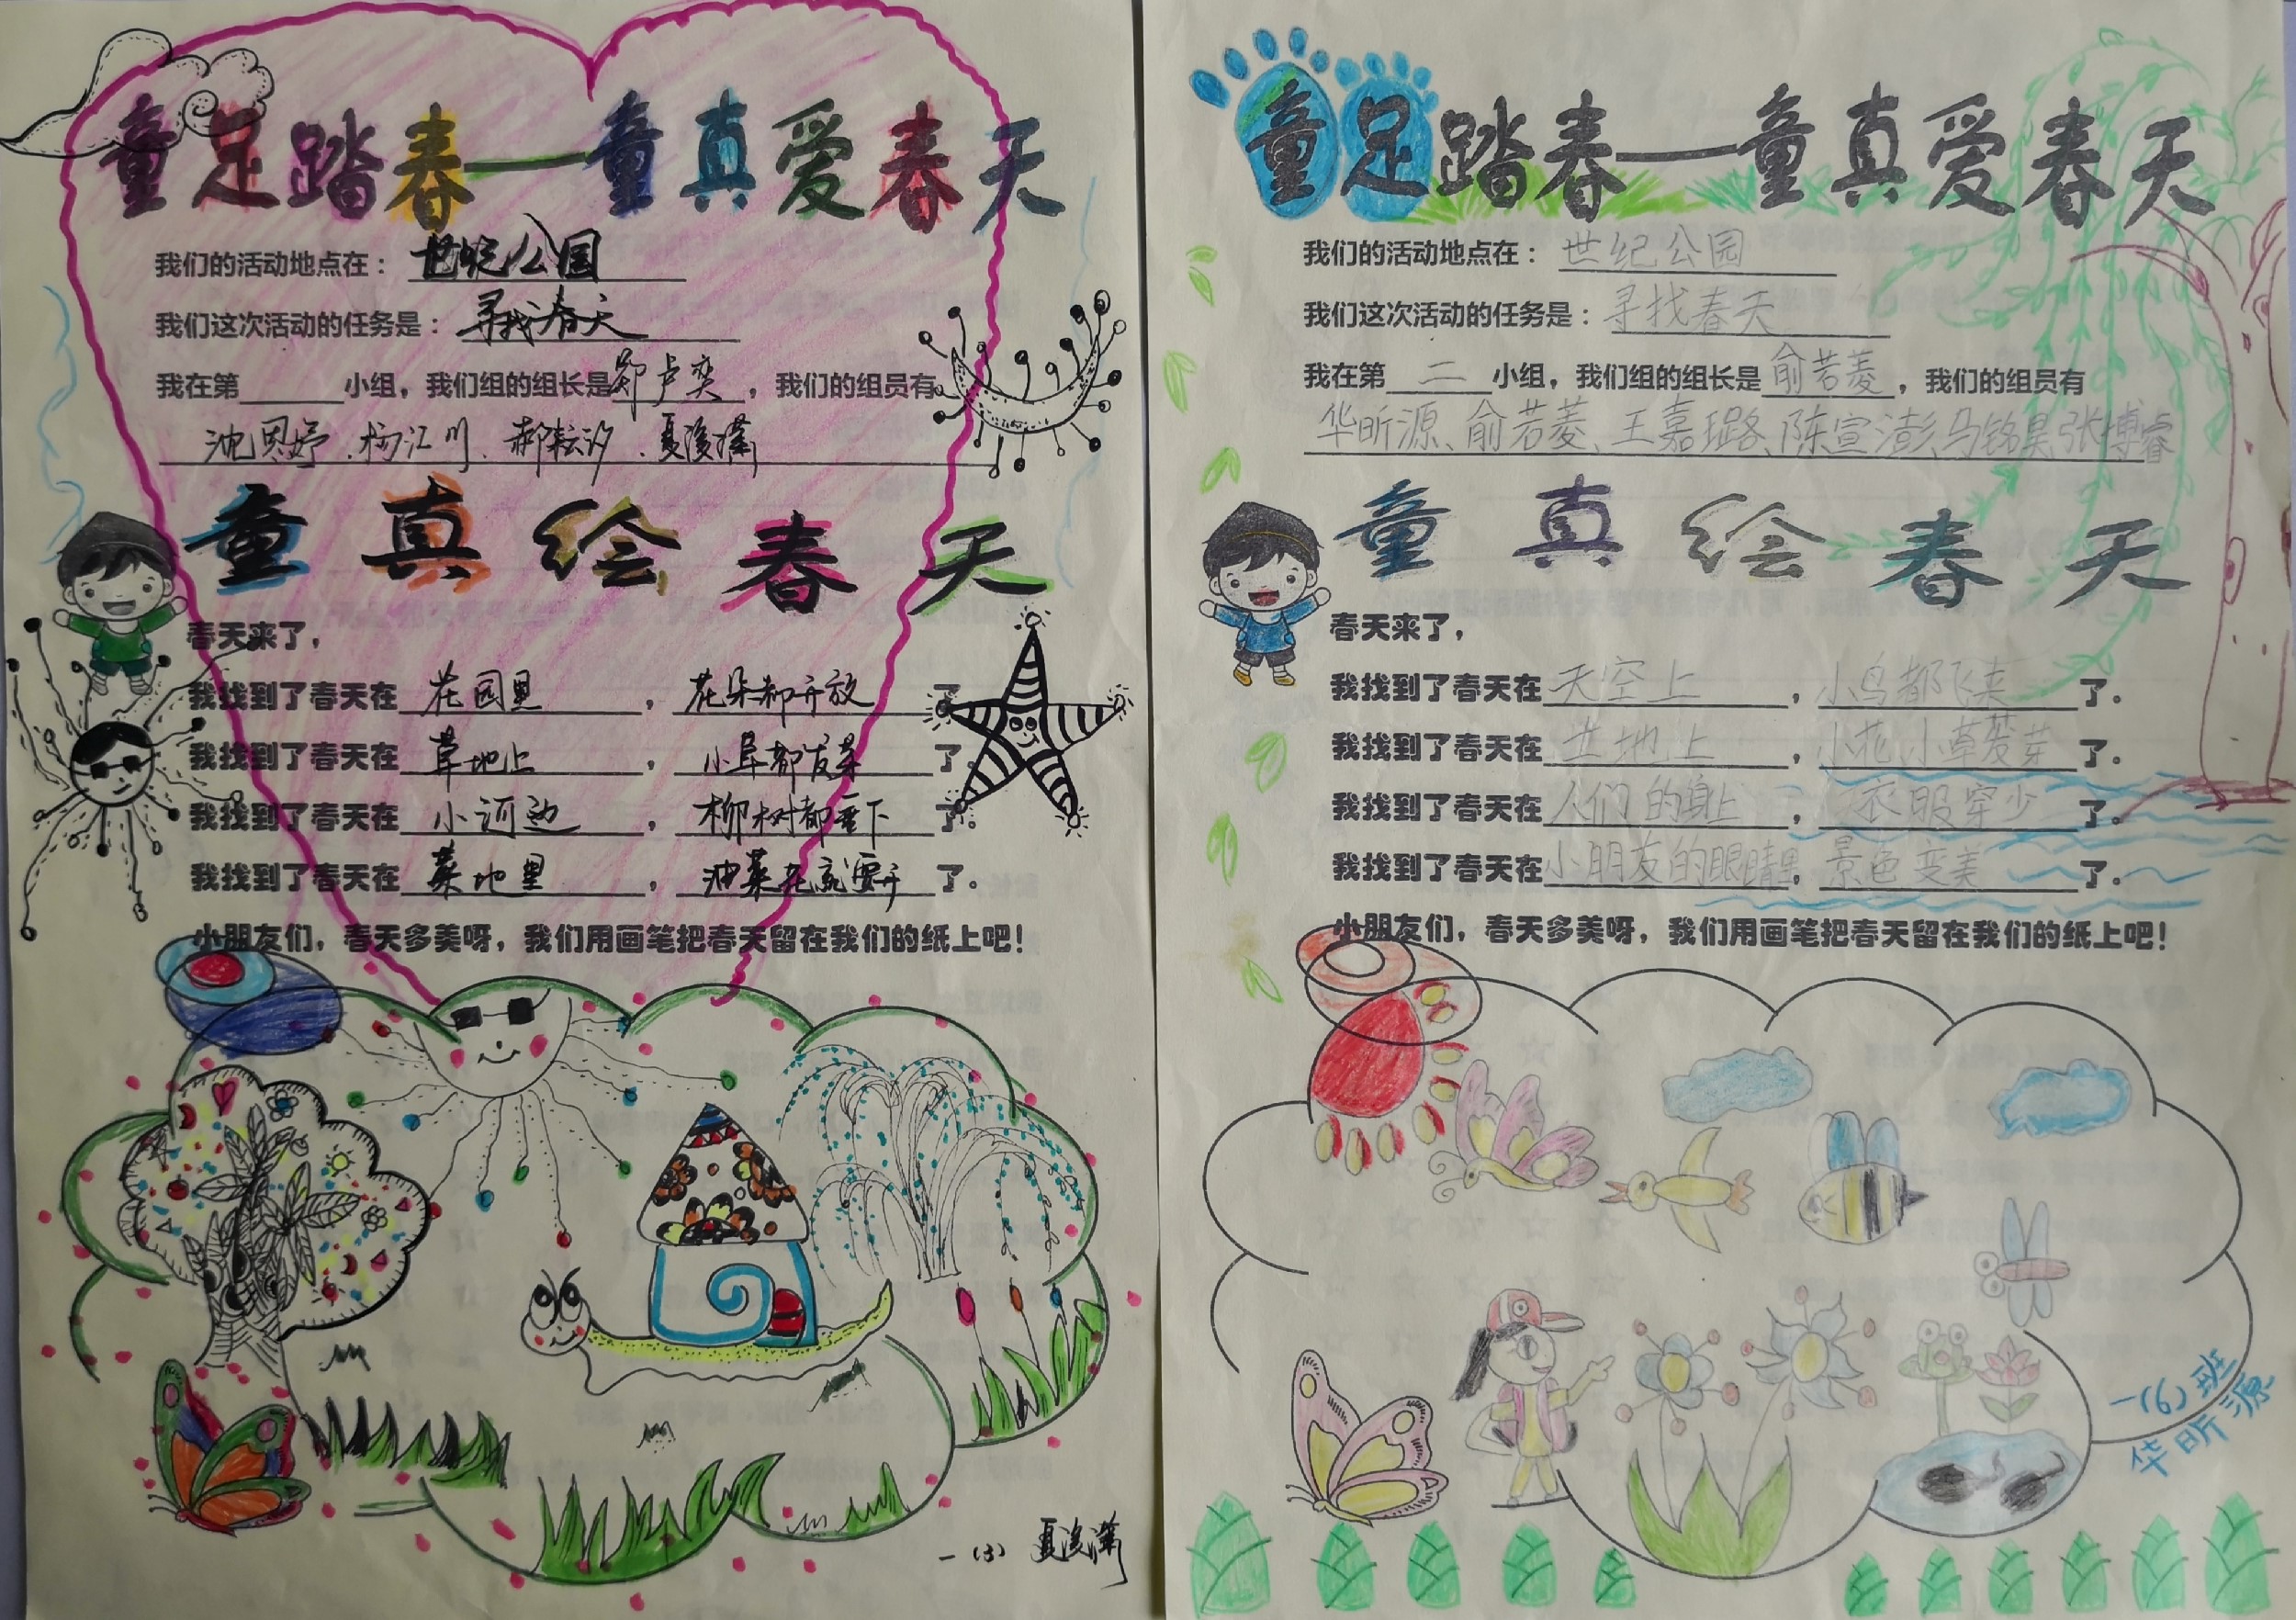 童足踏春——童真爱春天
我们的活动地点在：世纪公园
我们这次活动的任务是：寻找春天
我在第 小组，我们组的组长是郑卢奕，我们的组员有
沈思妤、杨江川、郝耘汐、夏浚潇
童真绘春天
春天来了，
我找到了春天在花园里，花朵都开放了。
我找到了春天在草地上，小草都发芽了。
我找到了春天在小河边，柳树都垂下了。
我找到了春天在菜地里，油菜花就要开了。
小朋友们，春天多美呀，我们用画笔把春天留在我们的纸上吧！
夏浚潇
童足踏春——童真爱春天
我们的活动地点在：世纪公园
我们这次活动的任务是：寻找春天
我在第二小组，我们组的组长是俞若菱，我们的组员有
华昕源、俞若菱、王嘉璐、陈宣澎、马铭昊、张博睿
童真绘春天
春天来了，
我找到了春天在天空上，小鸟都飞来了。
我找到了春天在土地上，小花小草发芽了。
我找到了春天在人们的身上，衣服穿少了。
我找到了春天在小朋友的眼睛里，景色变美了。
小朋友们，春天多美呀，我们用画笔把春天留在我们的纸上吧！
一(6)班
华昕源